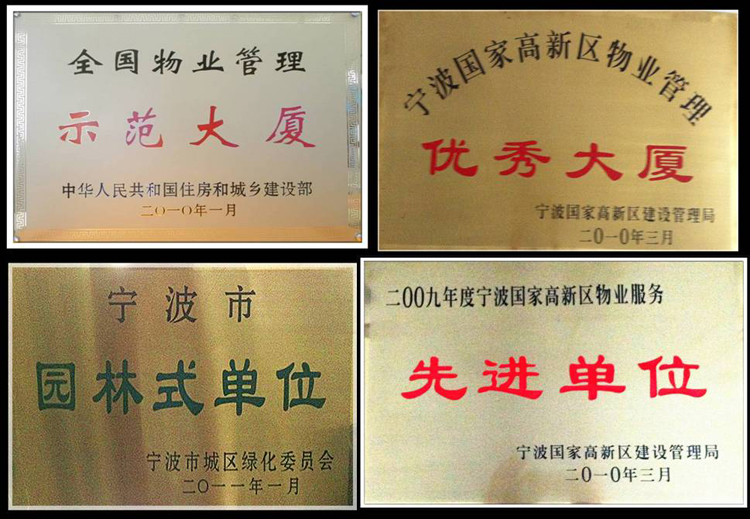 全国物业管理
示范大厦
中华人民共和国住房和城乡建设部
二〇一〇年一月
宁波国家高新区物业管理
优秀大厦
宁波国家高新区建设管理局
二〇一〇年三月
宁波市
园林式单位
宁波市城区绿化委员会
二〇一一年一月
二〇〇九年度宁波国家高新区物业服务
先进单位
宁波国家高新区建设管理局
二〇一〇年三月